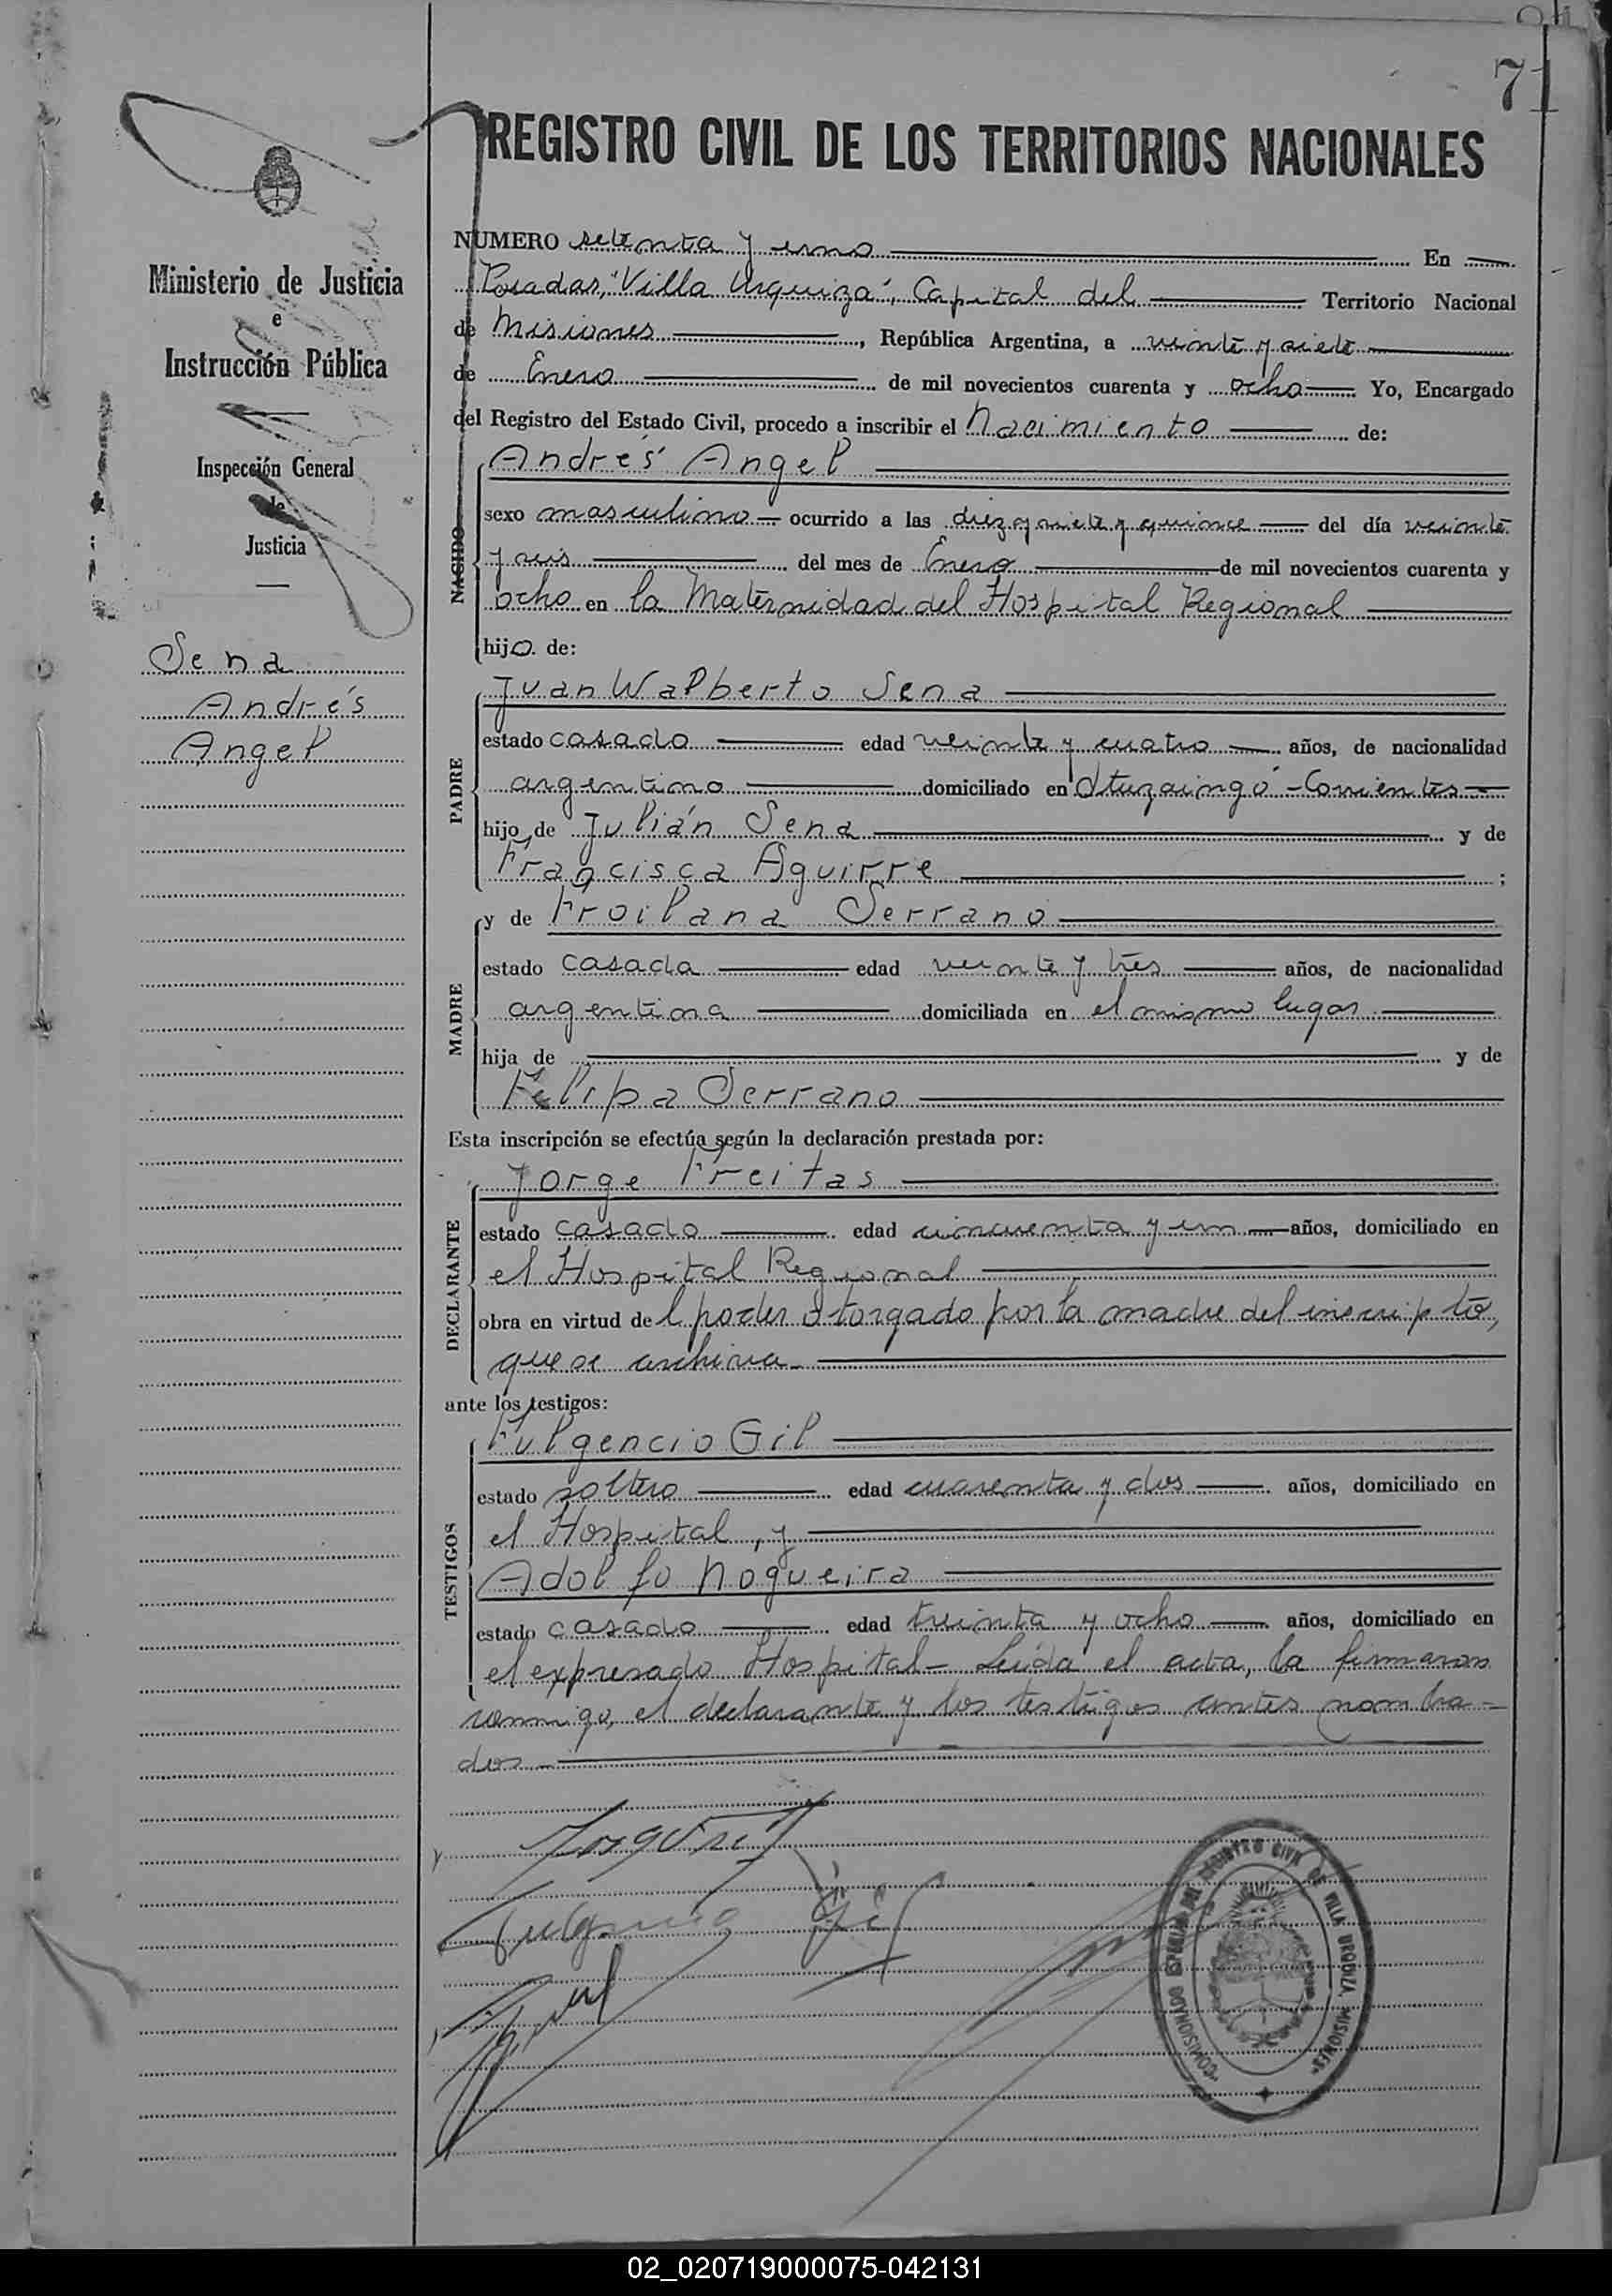 71
REGISTRO CIVIL DE LOS TERRITORIOS NACIONALES
Ministerio de Justicia
e
Instrucción Pública
Inspección General
de
Justicia
Sena
Andrés
Angel
NUMERO setenta y uno En
Posadas, "Villa Urquiza", Capital del Territorio Nacional
de Misiones, República Argentina, a veinte y siete
de Enero de mil novecientos cuarenta y ocho Yo, Encargado
del Registro del Estado Civil, procedo a inscribir el Nacimiento de:
Andrés Angel
NACIDO
sexo masculino ocurrido a las diez y siete y quince del día veinte
y seis del mes de Enero de mil novecientos cuarenta y
ocho en la Maternidad del Hospital Regional
hijo de:
Juan Walberto Sena
PADRE
estado casado edad veinte y cuatro años, de nacionalidad
argentino domiciliado en Ituzaingó - Corrientes
hijo de Julián Sena y de
Francisca Aguirre ;
MADRE
y de Froilana Serrano
estado casada edad veinte y tres años, de nacionalidad
argentina domiciliada en el mismo lugar
hija de y de
Felipa Serrano
Esta inscripción se efectúa según la declaración prestada por:
Jorge Freitas
DECLARANTE
estado casado edad cincuenta y un años, domiciliado en
el Hospital Regional
obra en virtud del poder otorgado por la madre del inscripto,
que se archiva
ante los testigos:
Fulgencio Gil
TESTIGOS
estado soltero edad cuarenta y dos años, domiciliado en
el Hospital, y
Adolfo Nogueira
estado casado edad treinta y ocho años, domiciliado en
el expresado Hospital - Leída el acta, la firmaron
conmigo, el declarante y los testigos antes nombra-
dos
Fulgencio Gil
COMISIONADO ESPECIAL DEL REGISTRO CIVIL DE VILLA URQUIZA, MISIONES
02_020719000075-042131